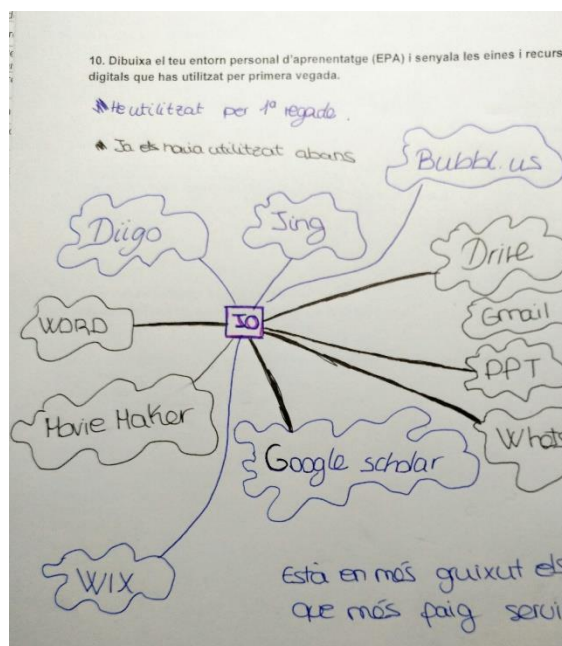 10. Dibuixa el teu entorn personal d'aprenentatge (EPA) i senyala les eines i recurs
digitals que has utilitzat per primera vegada.
He utilitzat per 1ª vegada.
Ja els havia utilitzat abans
Bubbl.us
Diigo
Jing
Drive
WORD
JO
Gmail
PPT
Movie Maker
Google scholar
Whats
WIX
Està en més guixut els
que més faig servi